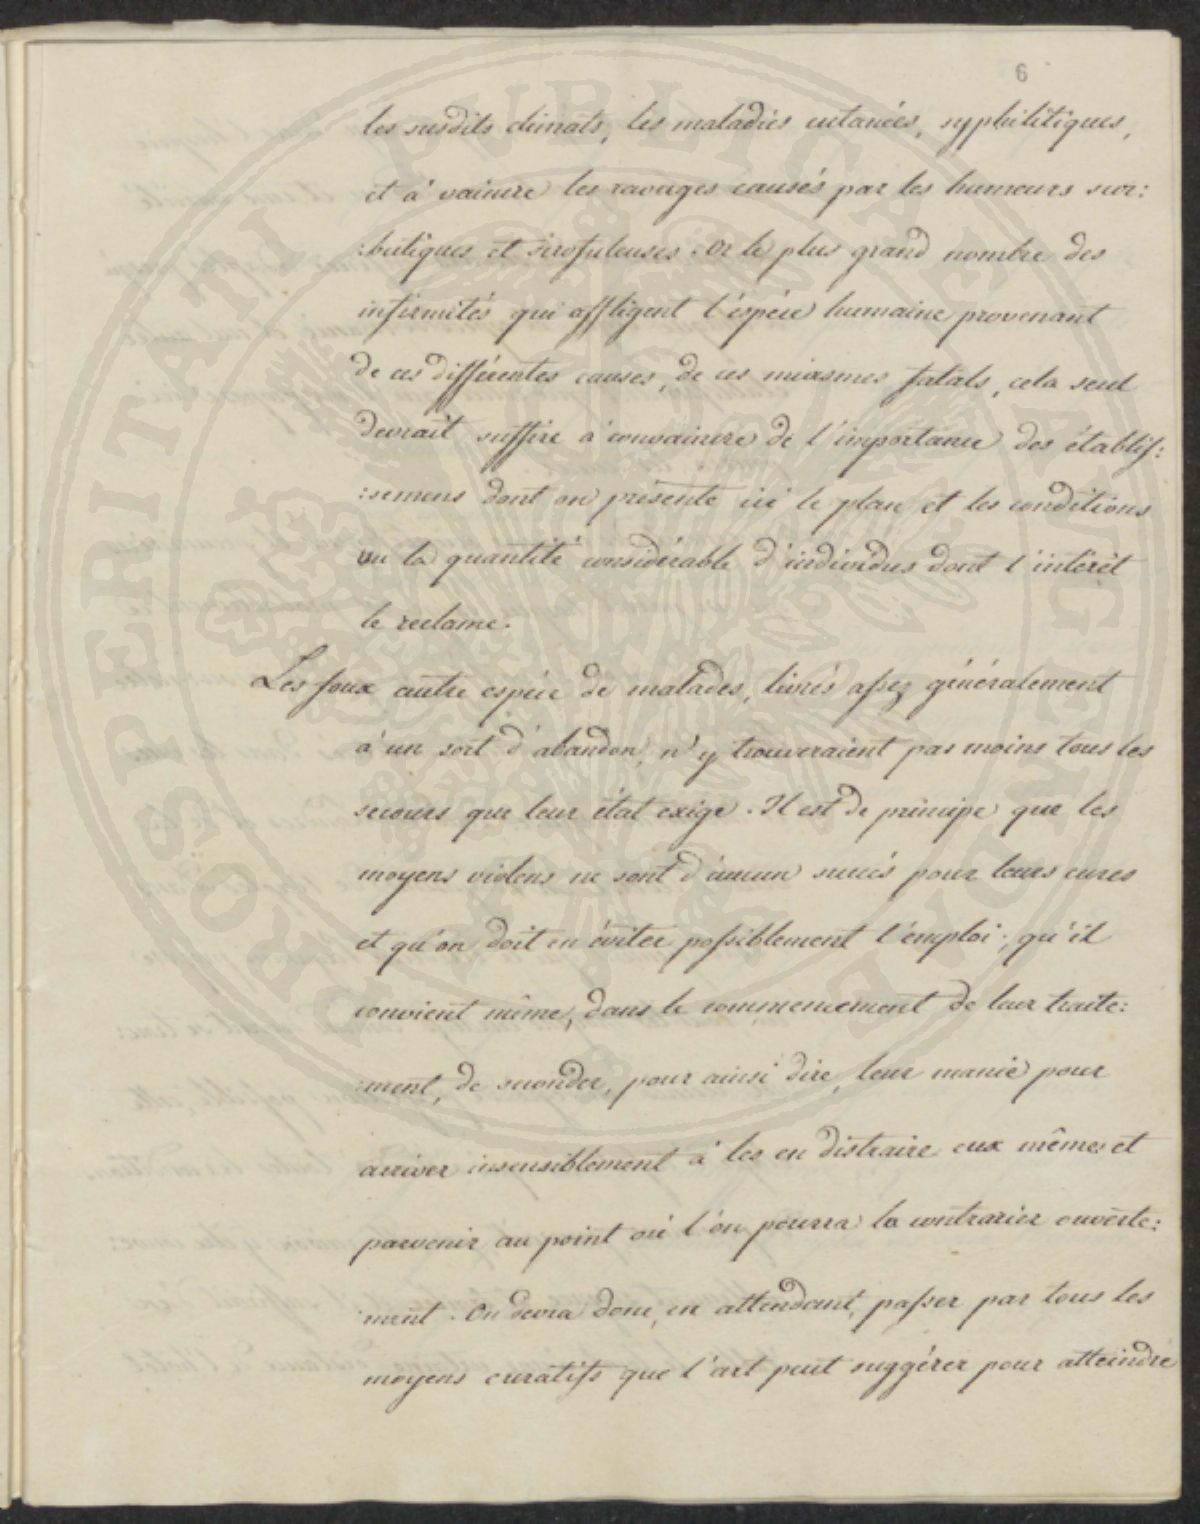 6
les susdits climats, les maladies cutanées, syphilitiques,
et à vaincre les ravages causés par les humeurs scor:
:butiques et scrofuleuses. Or le plus grand nombre des
infirmités qui affligent l'éspéce humaine provenant
de ces différentes causes, de ces miasmes fatals, cela seul
devrait suffire à convaincre de l'importance des établis:
:semens dont on présente ici le plan et les conditions
vu la quantité considérable d'individus dont l'intérêt
le reclame.
Les foux autre espéce de malades, livrés assez généralement
à un sort d'abandon, n'y trouveraient pas moins tous les
secours que leur état exige. Il est de principe que les
moyens violens ne sont d'aucun succés pour leurs cures
et qu'on doit en éviter possiblement l'emploi; qu'il
convient même, dans le commencement de leur traite:
:ment, de seconder, pour ainsi dire, leur manie pour
arriver insensiblement à les en distraire eux mêmes et
parvenir au point où l'on pourra la contrarier ouverte:
:ment. On devra donc, en attendant, passer par tous les
moyens curatifs que l'art peut suggérer pour atteindre
PROSPERITATI PUBLICAE